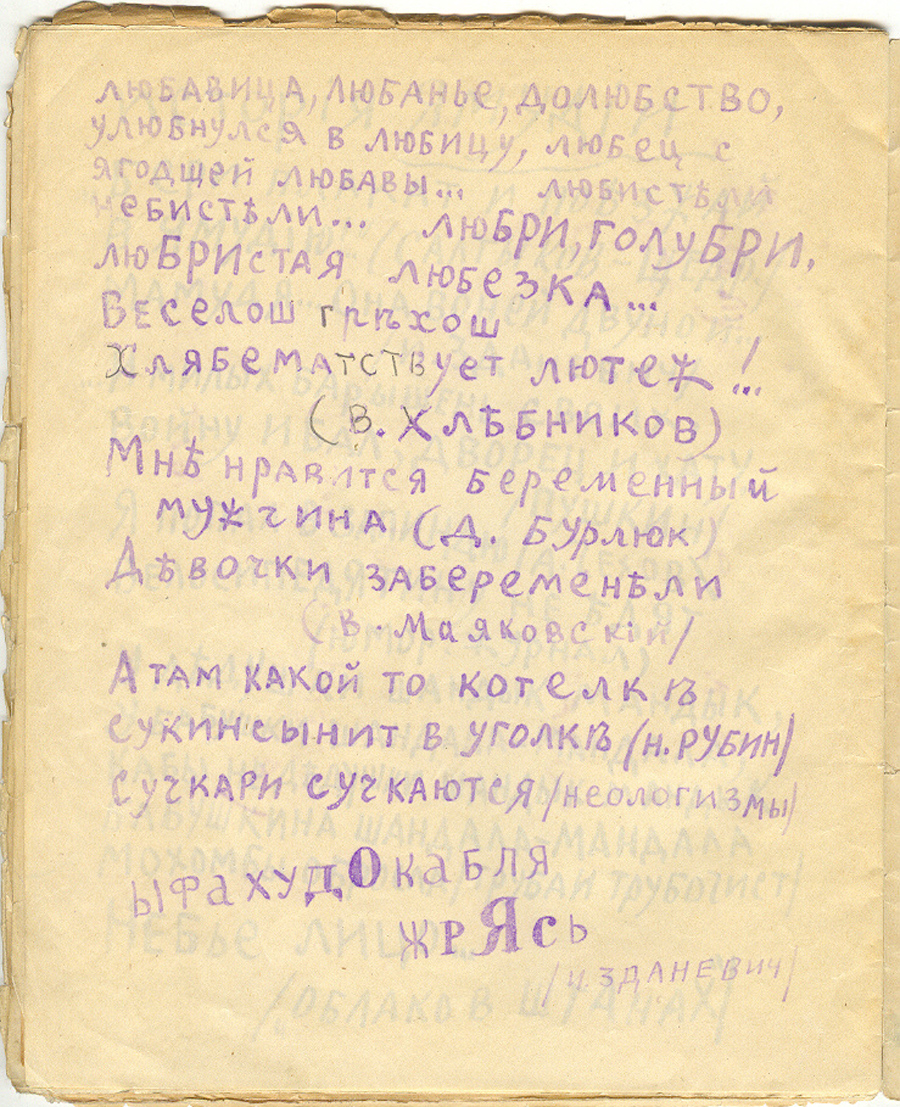 любавица, любанье, долюбство,
улюбнулся в любицу, любец с
ягодщей любавы... любистѣли
небистѣли... любри, голубри,
любристая любезка...
Веселош грѣхош
Хлябематствует лютеж!..
(В. Хлѣбников)
Мнѣ нравится беременный
мужчина (Д. Бурлюк)
Дѣвочки забеременѣли
(В. Маяковскій/
А там какой то котелкѣ
сукинсынит в уголкѣ (н. Рубин/
сучкари сучкаются /неологизмы/
ыфахудокабля
жрясь
/И. Зданевич/